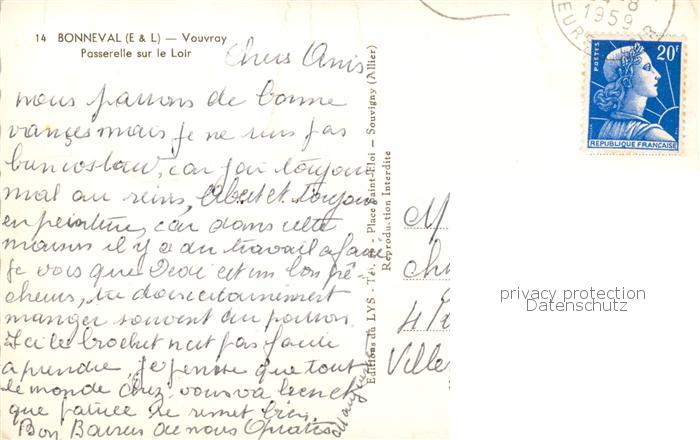 14 BONNEVAL (E & L) — Vouvray
Passerelle sur le Loir
Chers Amis
nous passons de bonne
vances mais je ne suis pas
car j'ai toujours
mal au reins, Albert et toujours
en peinture, car dans cette
maison il y a du travail a faire
je vois que Dédé est un bon pê-
cheur, tu dois certainement
manger souvent du poisson.
Ici le brochet n'est pas facile
a prendre, je pense que tout
le monde chez vous va bien et
que se remet bien.
Bon Baisers de nous Quatre
Editions du LYS - Tél. - Place Saint-Eloi - Souvigny (Allier)
Reproduction Interdite
1959
EURE
POSTES
20F
REPUBLIQUE FRANÇAISE
M
4
Ville
privacy protection
Datenschutz